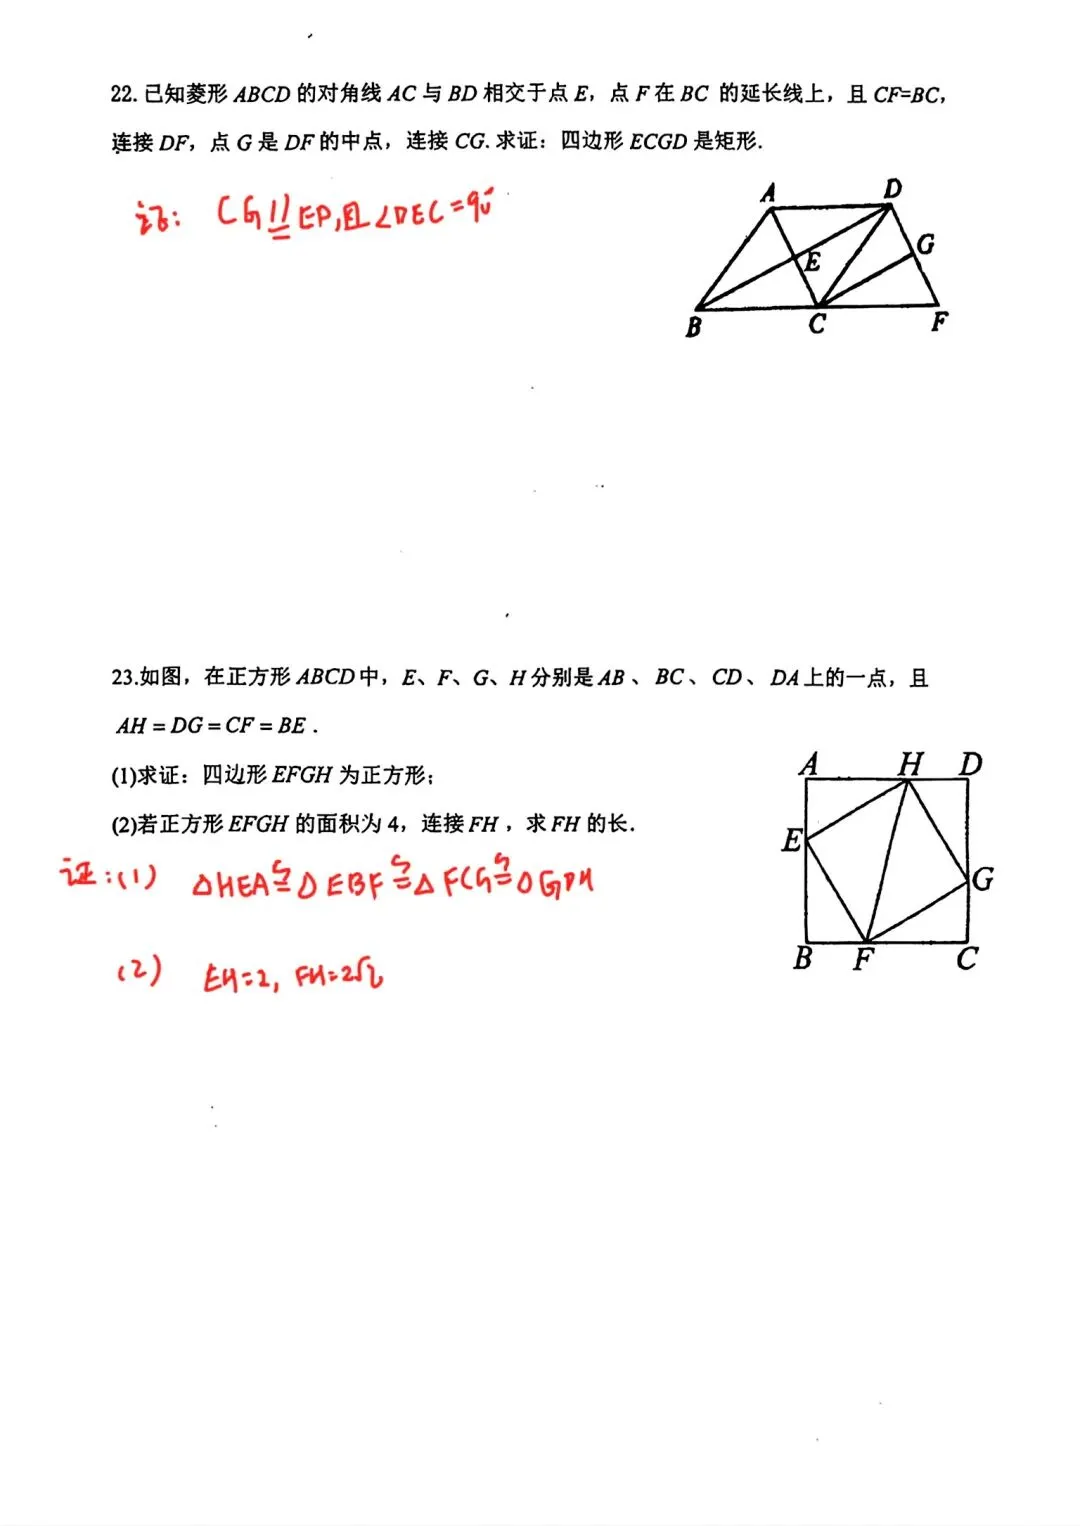 22. 已知菱形 ABCD 的对角线 AC 与 BD 相交于点 E，点 F 在 BC 的延长线上，且 CF=BC,
连接 DF，点 G 是 DF 的中点，连接 CG. 求证：四边形 ECGD 是矩形.
证: CG∥=ED,且∠DEC=90°
A D
G
E
B C F
23.如图，在正方形 ABCD 中，E、F、G、H 分别是 AB 、 BC、 CD、 DA 上的一点，且
AH = DG = CF = BE .
(1)求证：四边形 EFGH 为正方形;
(2)若正方形 EFGH 的面积为 4，连接 FH ，求 FH 的长.
A H D
E
G
B F C
证:(1) △HEA≌△EBF≌△FCG≌△GDH
(2) EH=2, FH=2√2